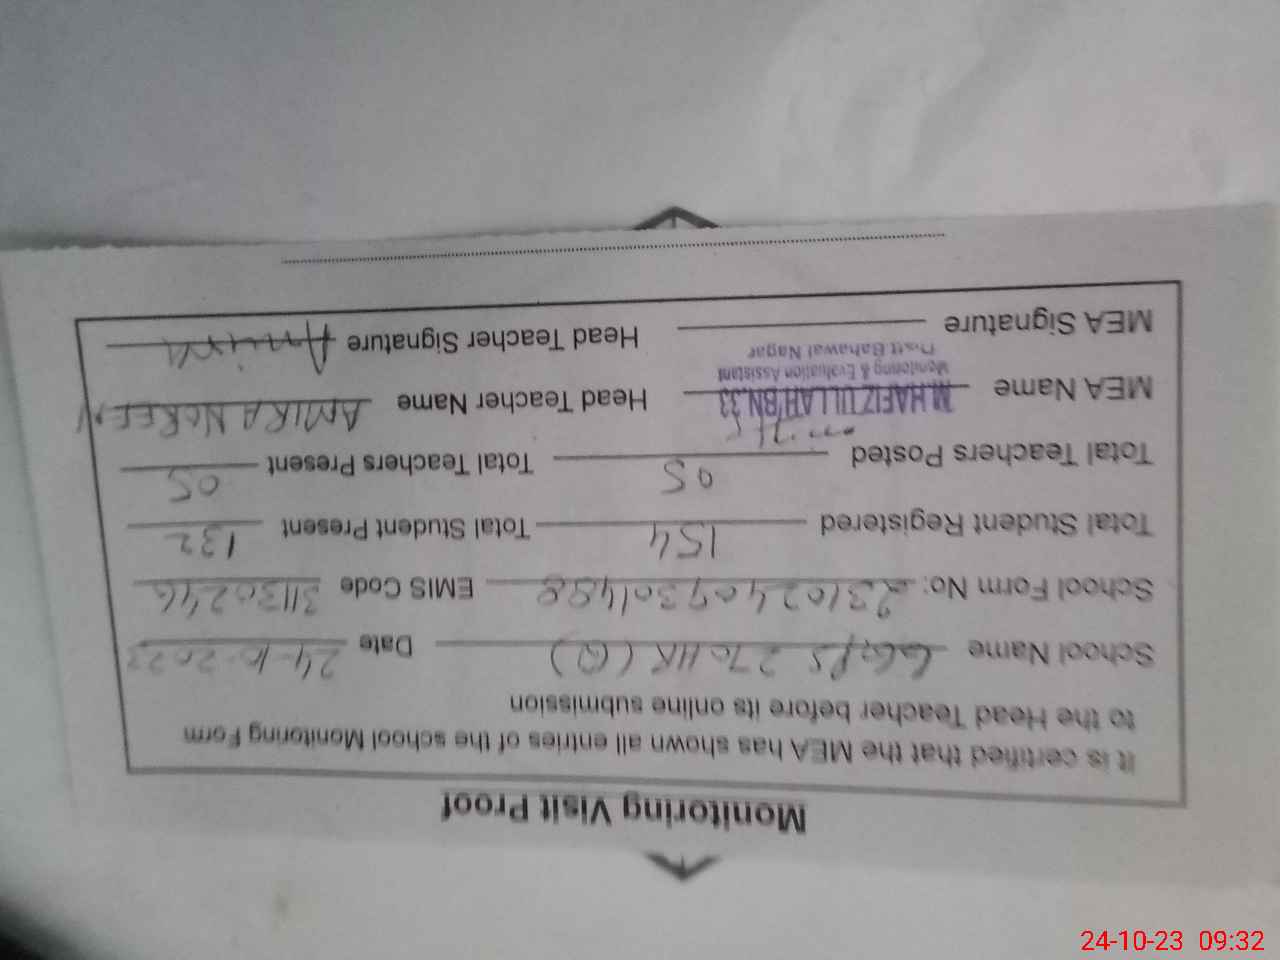 Monitoring Visit Proof
It is certified that the MEA has shown all entries of the school Monitoring Form
to the Head Teacher before its online submission
School Name GGPS 270 HR (Q) Date 24-10-2023
School Form No: 23102409301488 EMIS Code 31130246
Total Student Registered 154 Total Student Present 132
Total Teachers Posted 05 Total Teachers Present 05
MEA Name M.HAFIZ ULLAH BN.33 Head Teacher Name AMIRA NOREEN
Monitoring & Evaluation Assistant
Distt Bahawal Nagar
MEA Signature Head Teacher Signature Amira
24-10-23 09:32